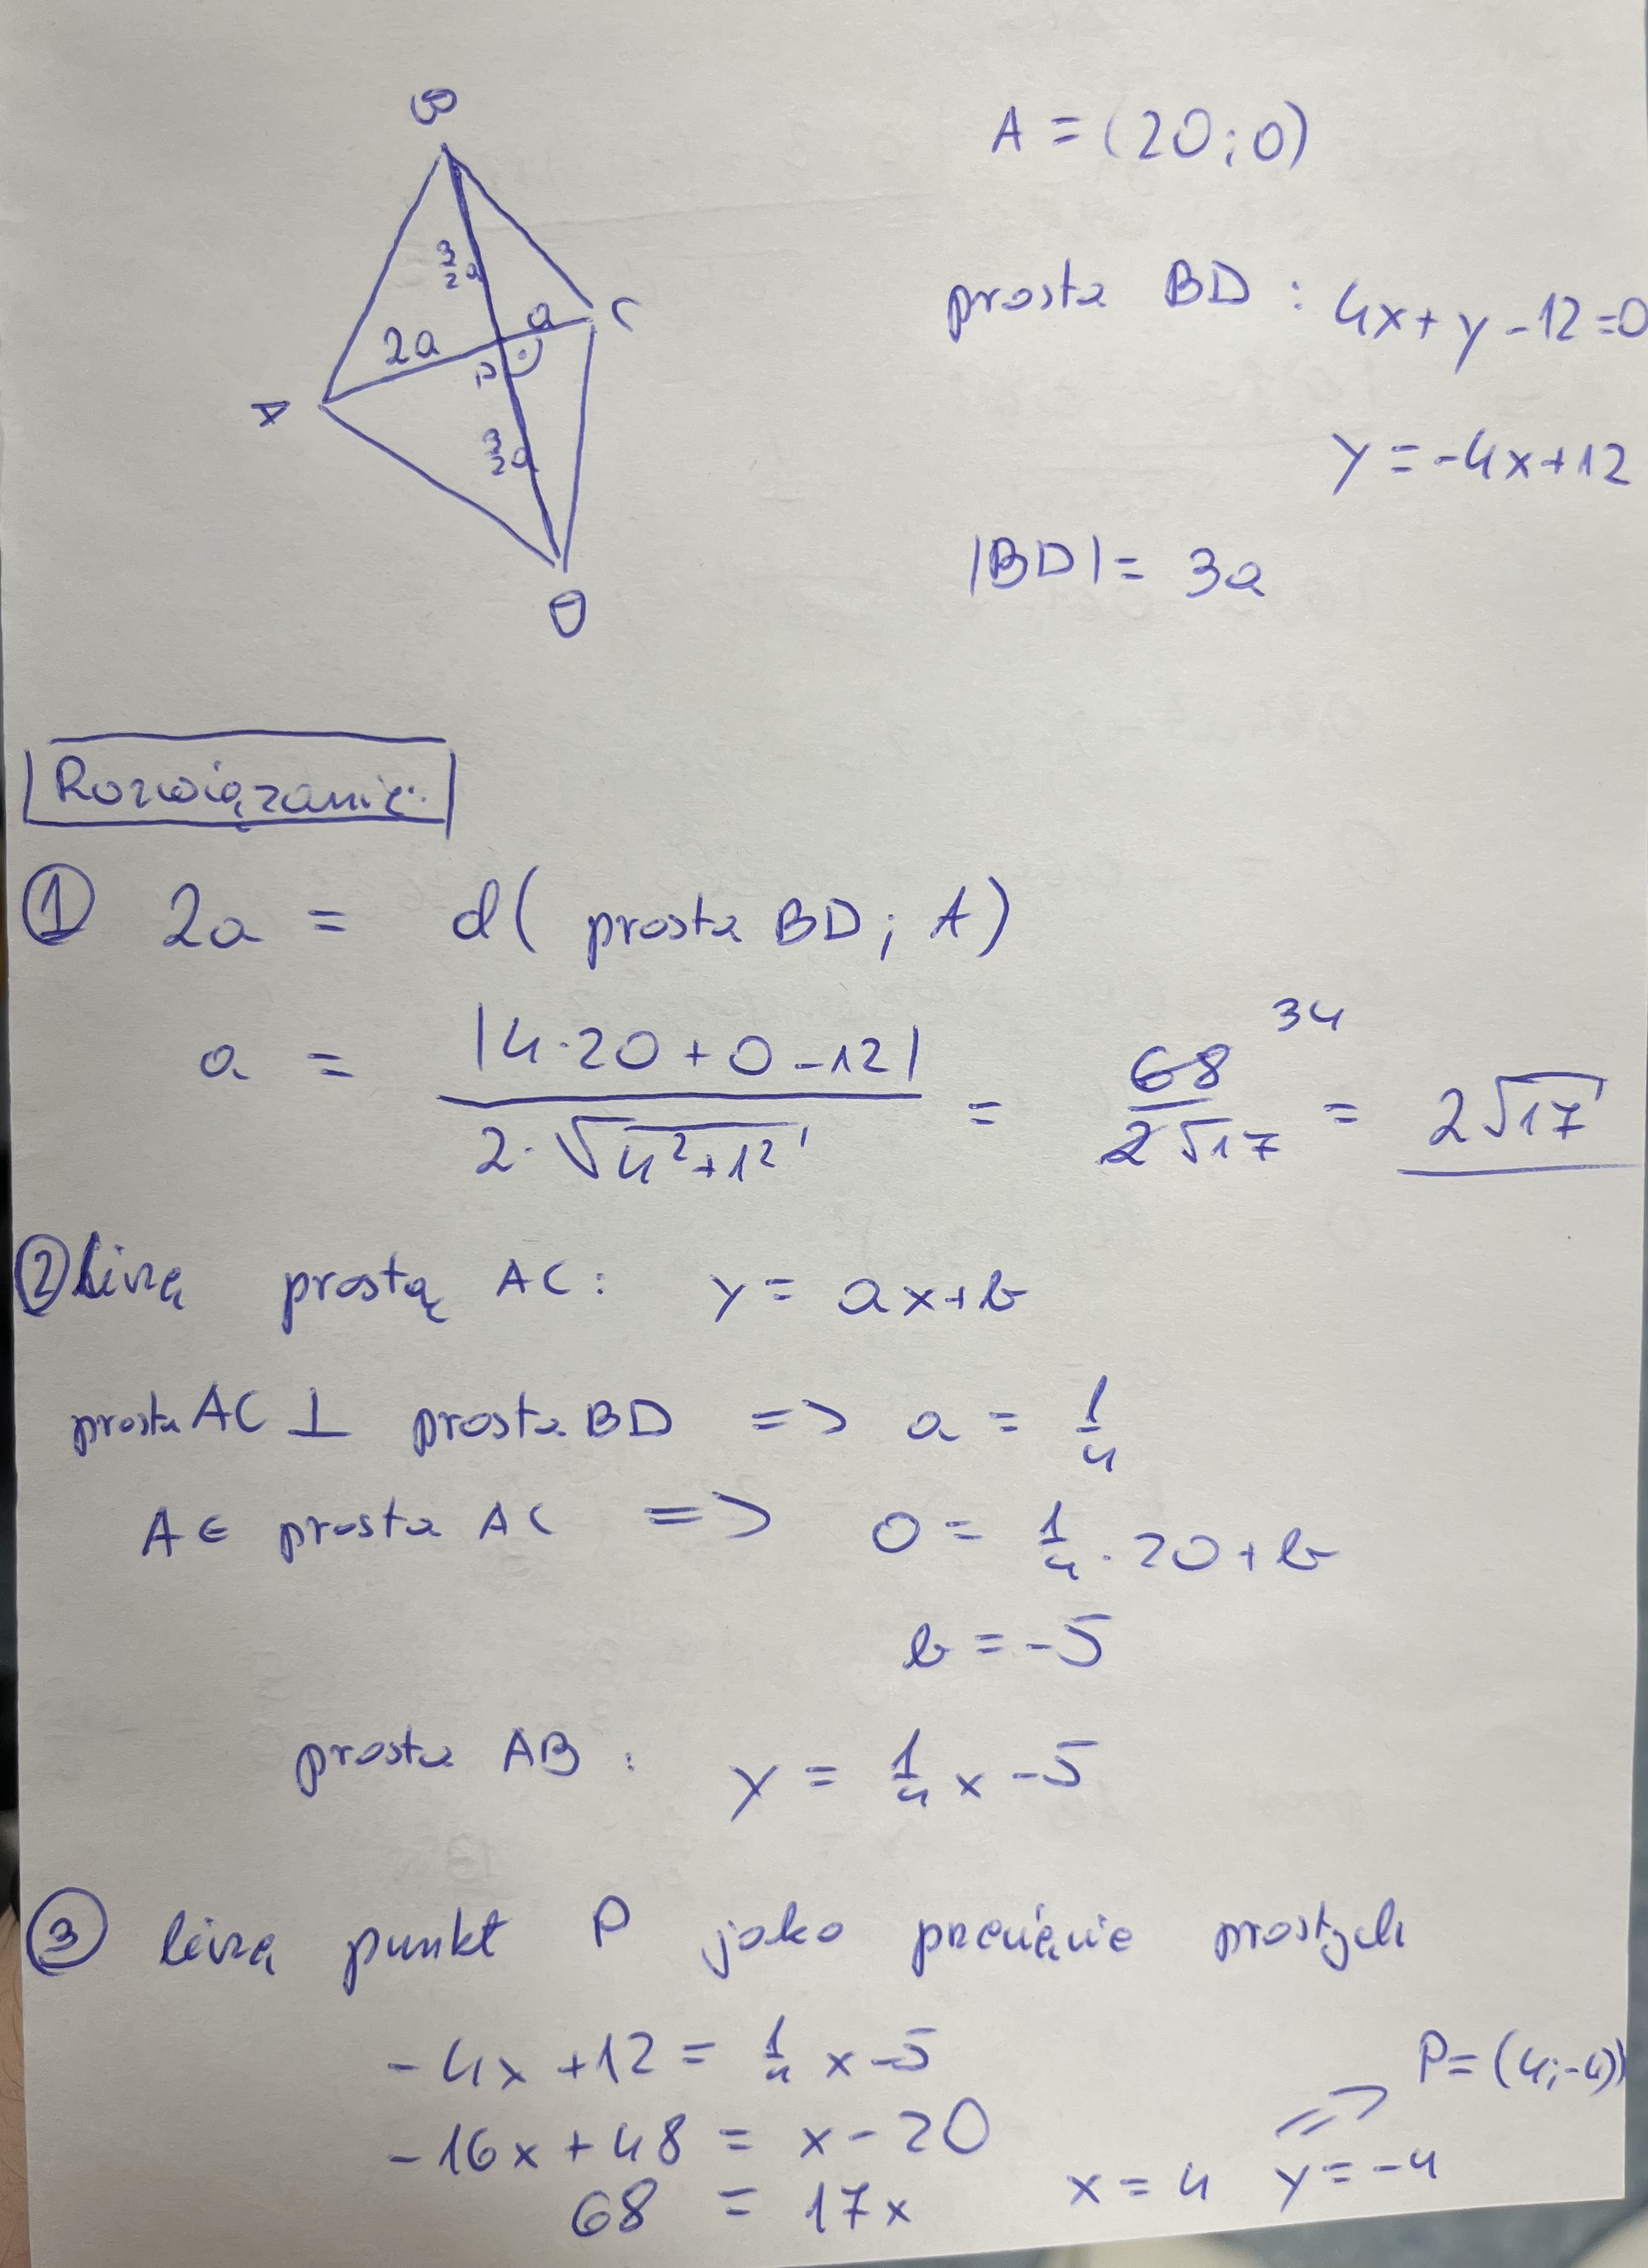 B
A = (20; 0)
3/2 a
prosta BD : 4x + y - 12 = 0
2a
a
C
P
A
3/2 a
y = -4x + 12
|BD| = 3a
D
Rozwiązanie:
① 2a = d( prosta BD; A)
a = |4·20 + 0 - 12| / 2·√(4²+1²) = 68 / 2√17 = 2√17
34
② liczę prostą AC: y = ax + b
prosta AC ⊥ prosta BD => a = 1/4
A ∈ prosta AC => 0 = 1/4 · 20 + b
b = -5
prosta AB : y = 1/4 x - 5
③ liczę punkt P jako przecięcie prostych
-4x + 12 = 1/4 x - 5
P = (4; -4)
-16x + 48 = x - 20 =>
68 = 17x x = 4 y = -4